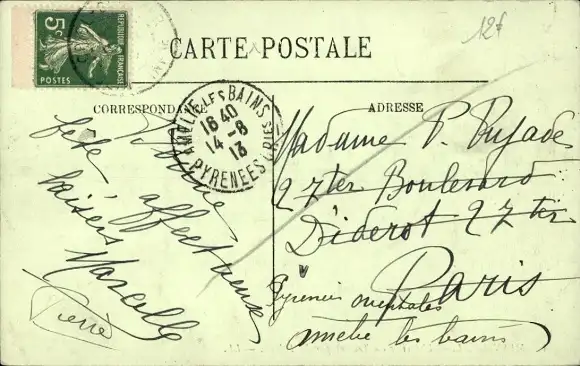 12f
5c
POSTES
RÉPUBLIQUE FRANÇAISE
CARTE POSTALE
CORRESPONDANCE
ADRESSE
AMÉLIE-LES-BAINS
18 40
14-8
13
PYRENEES ORIES
Bonne
fête
affectueux
baisers
Marcelle
Pierre
Madame P. Pujade
27ter Boulevard
Diderot 27ter
Paris
Pyrénées orientales
amélie les bains